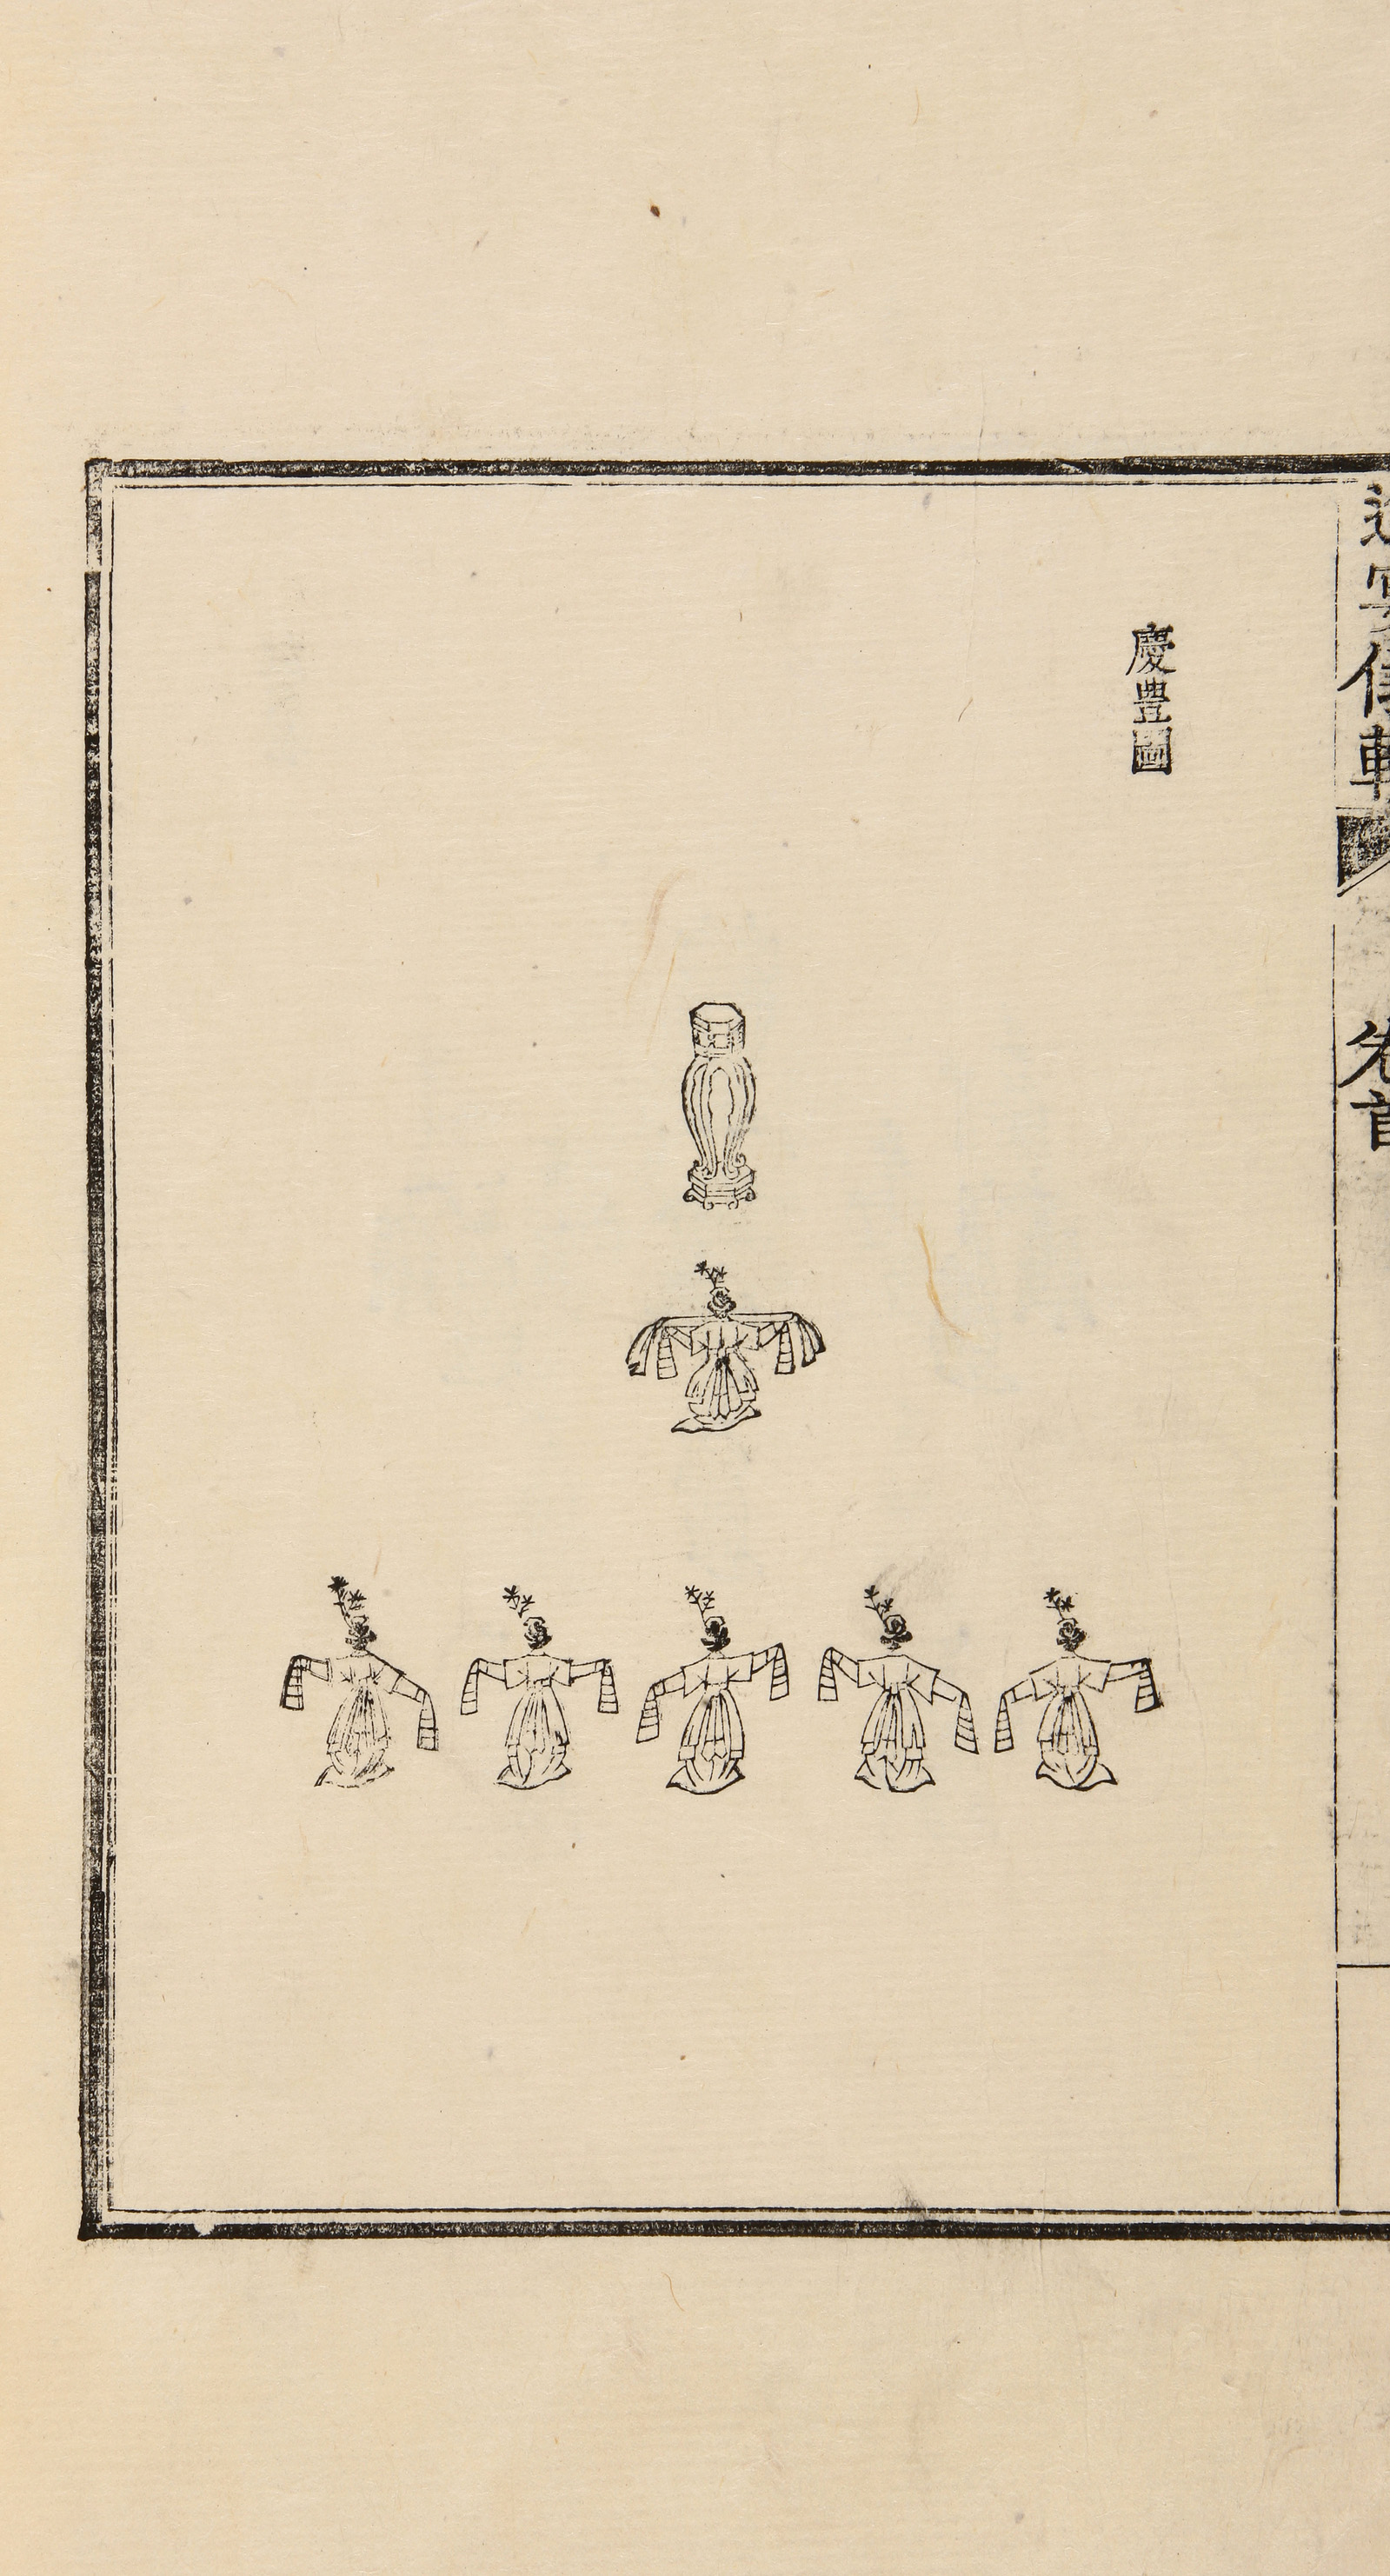 慶豊圖
進宴儀軌
卷首